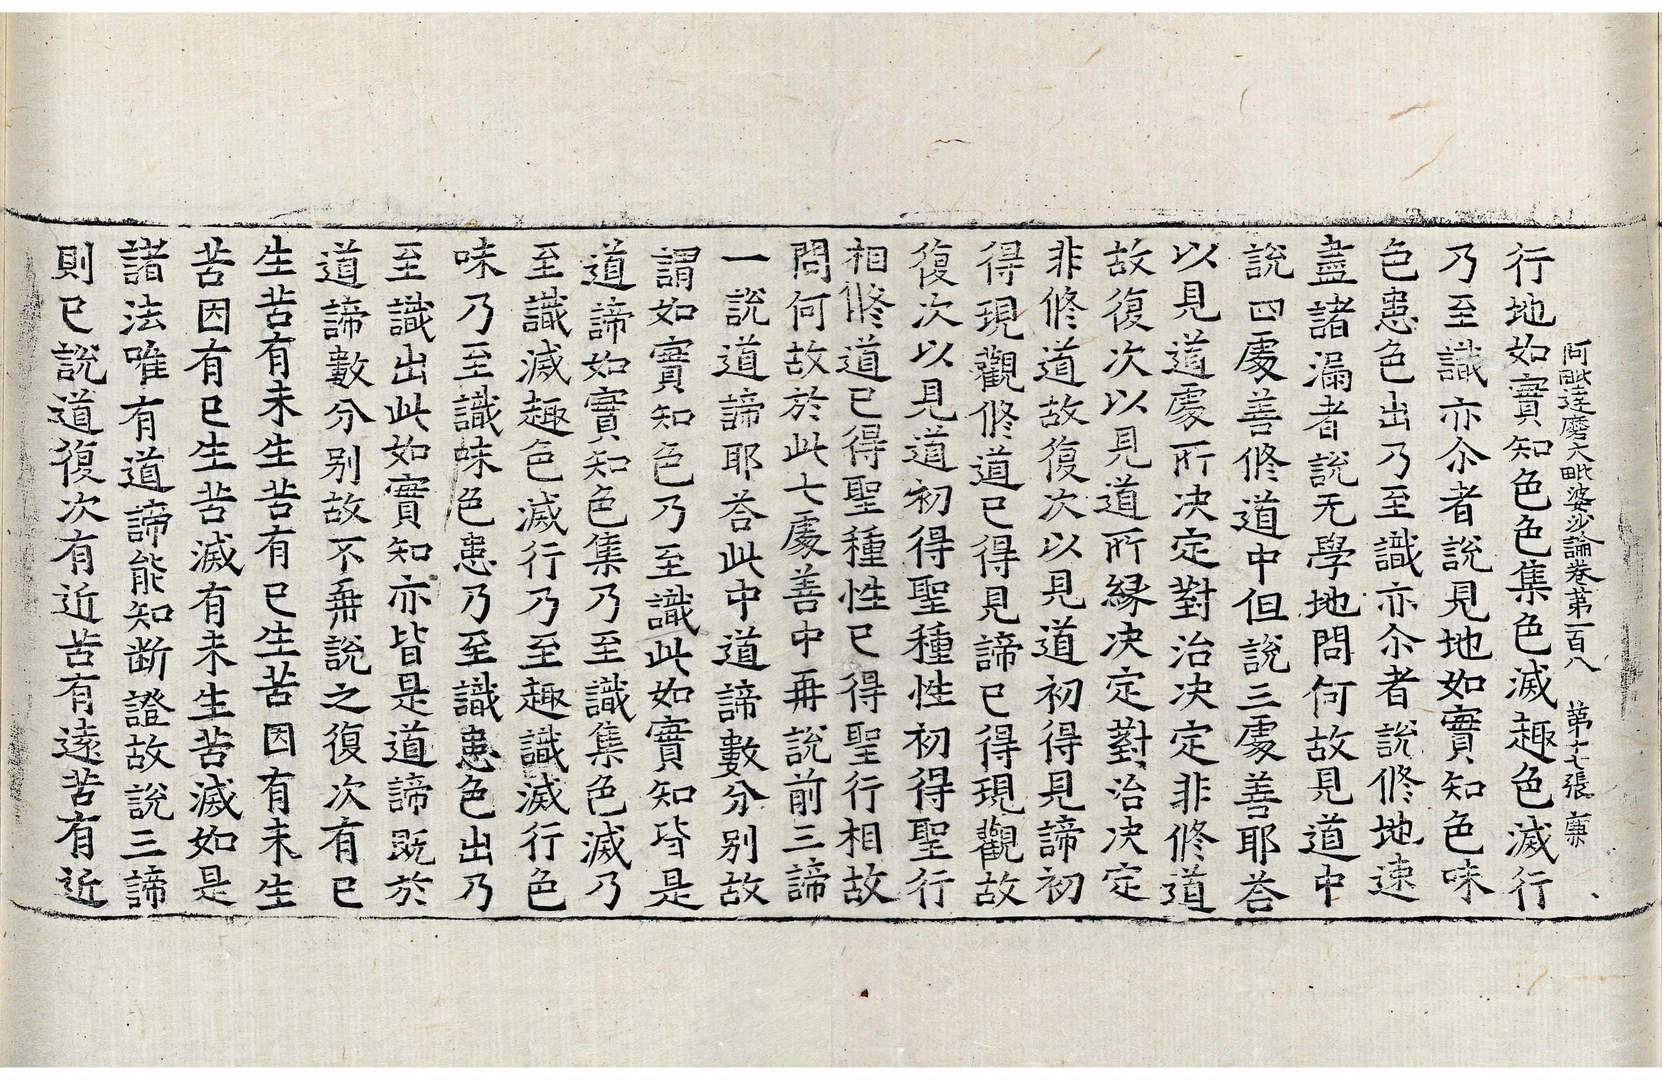 阿毗達磨大毗婆沙論卷第一百八　第十七張　稟
行地如實知色色集色滅趣色滅行
乃至識亦尒者說見地如實知色味
色患色出乃至識亦尒者說修地速
盡諸漏者說无學地問何故見道中
說四處善修道中但說三處善耶荅
以見道處所決定對治決定非修道
故復次以見道所緣決定對治決定
非修道故復次以見道初得見諦初
得現觀修道已得見諦已得現觀故
復次以見道初得聖種性初得聖行
相修道已得聖種性已得聖行相故
問何故於此七處善中再說前三諦
一說道諦耶荅此中道諦數分別故
謂如實知色乃至識此如實知皆是
道諦如實知色集乃至識集色滅乃
至識滅趣色滅行乃至趣識滅行色
味乃至識味色患乃至識患色出乃
至識出此如實知亦皆是道諦既於
道諦數分別故不再說之復次有已
生苦有未生苦有已生苦因有未生
苦因有已生苦滅有未生苦滅如是
諸法唯有道諦能知斷證故說三諦
則已說道復次有近苦有遠苦有近